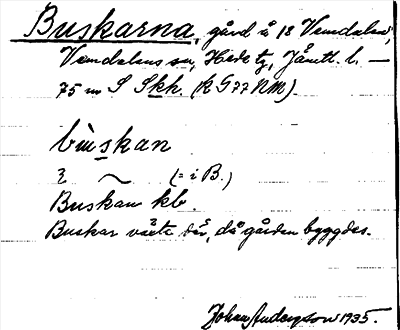 Buskarna, gård å 18 Vemdalen,
Vemdalens sn, Hede tg, Jämtl. l. —
75 m S Skh. (k G 77 NM).
bùskan
ⁱ ~ (= i B.)
Buskan kb.
Buskar växte där, då gården byggdes.
Johan Anderson 1935.